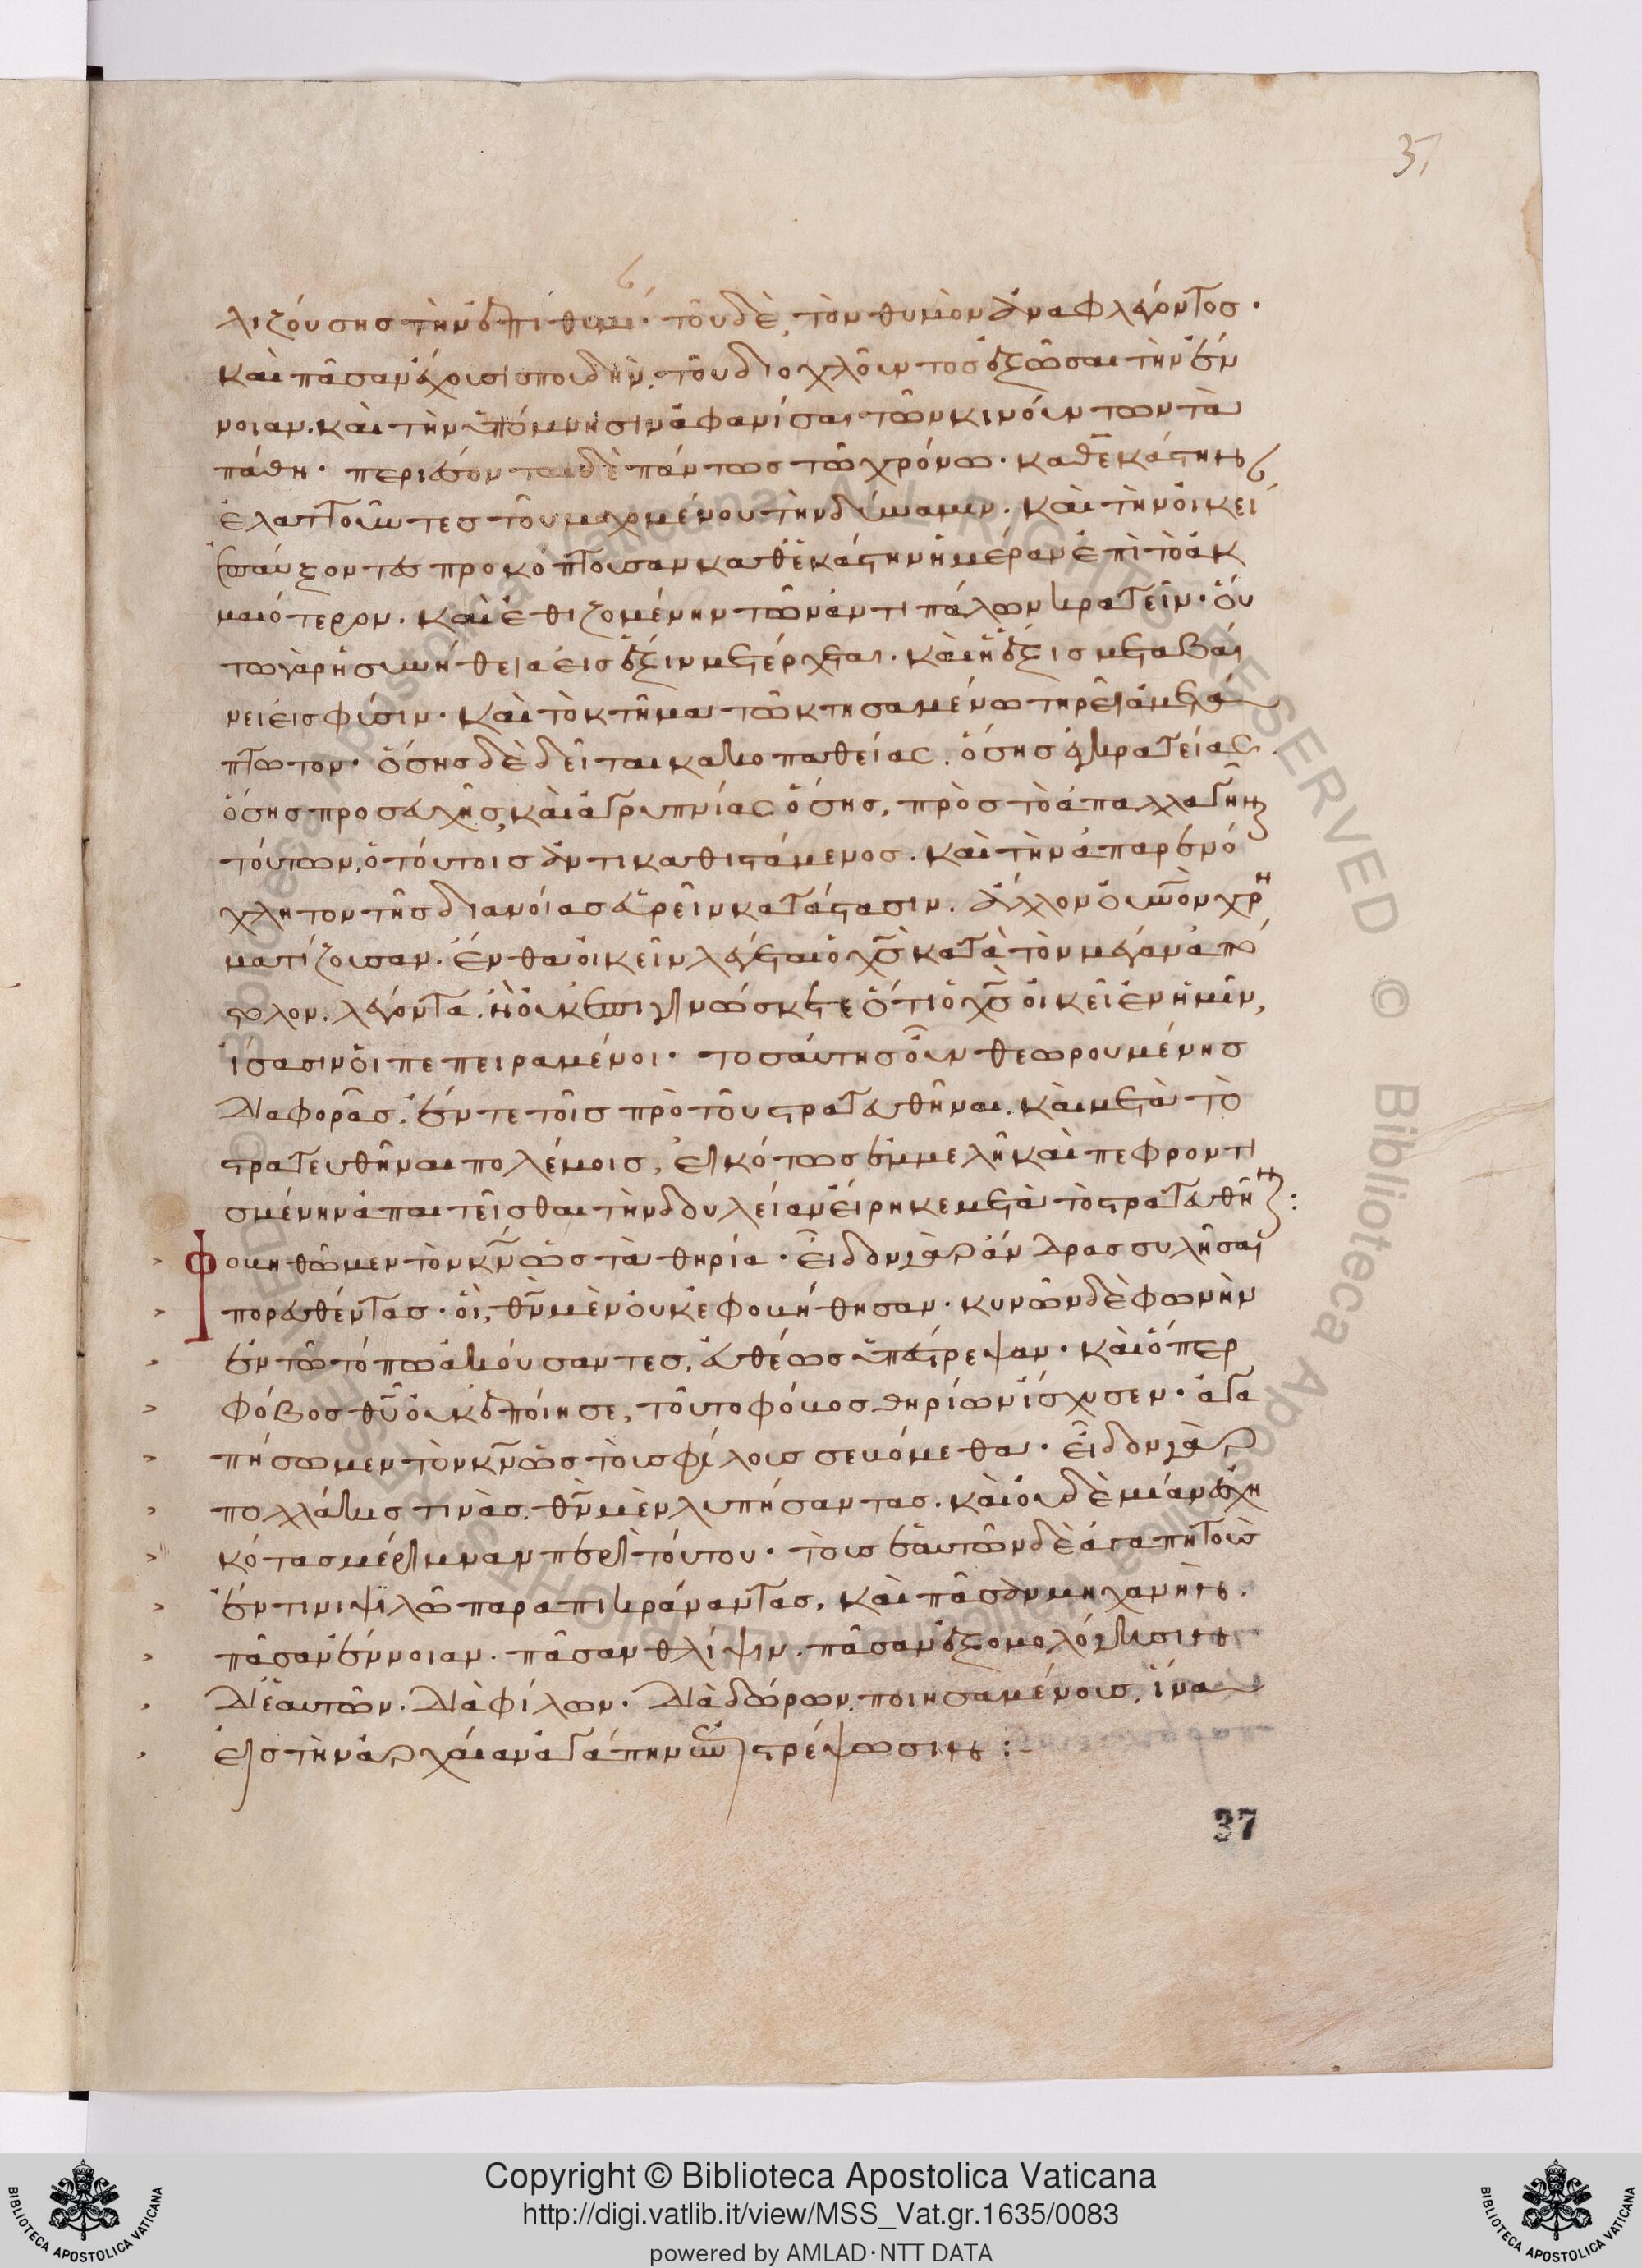 37
λιζούσης τὴν ἐπιθυμί· τοῦ δὲ, τὸν θυμὸν ἀναφλέγοντος·
καὶ πᾶσαν ἔχουσι σπουδὴν, τοῦ διοχλοῦντος ἐξῶσαι τὴν ἔν
νοιαν. καὶ τὴν ὑπόμνησιν ἀφανίσαι τῶν κινούντων τὰ
πάθη· περιττὸν δὲ πάντως τῷ χρόνῳ· καθεκάστην
ἐλαττοῦντες τοῦ μαχομένου τὴν δύναμιν. καὶ τὴν οἰκεί
αν αὔξοντες προκόπτουσαν καθεκάστην ἡμέραν ἐπὶ τὸ ἀκ
μαιότερον. καὶ ἐθιζομένην τῶν ἀντιπάλων κρατεῖν· οὕ
τω γὰρ ἡ συνήθεια εἰς ἕξιν μετέρχεται. καὶ ἡ ἕξις μεταβαί
νει εἰς φύσιν· καὶ τὸ κτῆμα τῷ κτησαμένῳ τηρεῖ ἀμετά
πτωτον· ὅσης δὲ δεῖται κακοπαθείας. ὅσης ἐγκρατείας.
ὅσης προσευχῆς, καὶ ἀγρυπνίας ὅσης, πρὸς τὸ ἀπαλλαγῆν
τούτων, ὁ τούτοις ἀντικαθιστάμενος. καὶ τὴν ἀπαρενό
χλητον τῆς διανοίας εὑρεῖν κατάστασιν. ἄλλον οὐνὸν χρη
ματίζουσαν. ἔνθα οἰκεῖν λέγεται ὁ χς κατὰ τὸν μέγαν ἀπό
στολον. λέγοντα. ἢ οὐκ ἐπιγινώσκετε ὅτι ὁ χς οἰκεῖ ἐν ἡμῖν,
ἴσασιν οἱ πεπειραμένοι· τοσαύτης οὖν θεωρουμένης
διαφορᾶς. ἔν τε τοῖς πρὸ τοῦ στρατευθῆναι. καὶ μετὰ τὸ
στρατευθῆναι πολέμοις, εἰκότως ἐμμελῆ καὶ πεφροντι
σμένην ἀπαιτεῖσθαι τὴν δουλείαν εἴρηκε μετὰ τὸ στρατευθῆν:
Φοβηθῶμεν τὸν κν ὡς τὰ θηρία· εἶδον γὰρ ἄνδρας συλῆσαι
πορευθέντας· οἳ, θν μὲν οὐκ ἐφοβήθησαν· κυνῶν δὲ φωνὴν
ἐν τῷ τόπῳ ἀκούσαντες, εὐθέως ὑπέστρεψαν· καὶ ὅπερ
φόβος θυ οὐκ ἐποίησε, τοῦτο φόβος θηρίων ἴσχυσεν· ἀγα
πήσωμεν τὸν κν ὡς τοὺς φίλους σεβόμεθα· εἶδον γὰρ
πολλάκις τινὰς. θν μὲν λυπήσαντας. καὶ οὐδὲ μίαν ἐσχη
κότας μέριμναν περὶ τούτου· τοὺς ἑαυτῶν δὲ ἀγαπητοὺς
ἔν τινι ψιλῷ παραπικράναντας, καὶ πᾶσαν μηχανὴν.
πᾶσαν ἔννοιαν. πᾶσαν θλίψιν. πᾶσαν ἐξομολόγησιν
δι ἑαυτῶν. διὰ φίλων. διὰ δώρων. ποιησαμένους, ἵνα
εἰς τὴν ἀρχαίαν ἀγάπην ὑποστρέψωσιν:-
37
Copyright © Biblioteca Apostolica Vaticana
http://digi.vatlib.it/view/MSS_Vat.gr.1635/0083
powered by AMLAD·NTT DATA
BIBLIOTECA APOSTOLICA VATICANA
BIBLIOTECA APOSTOLICA VATICANA